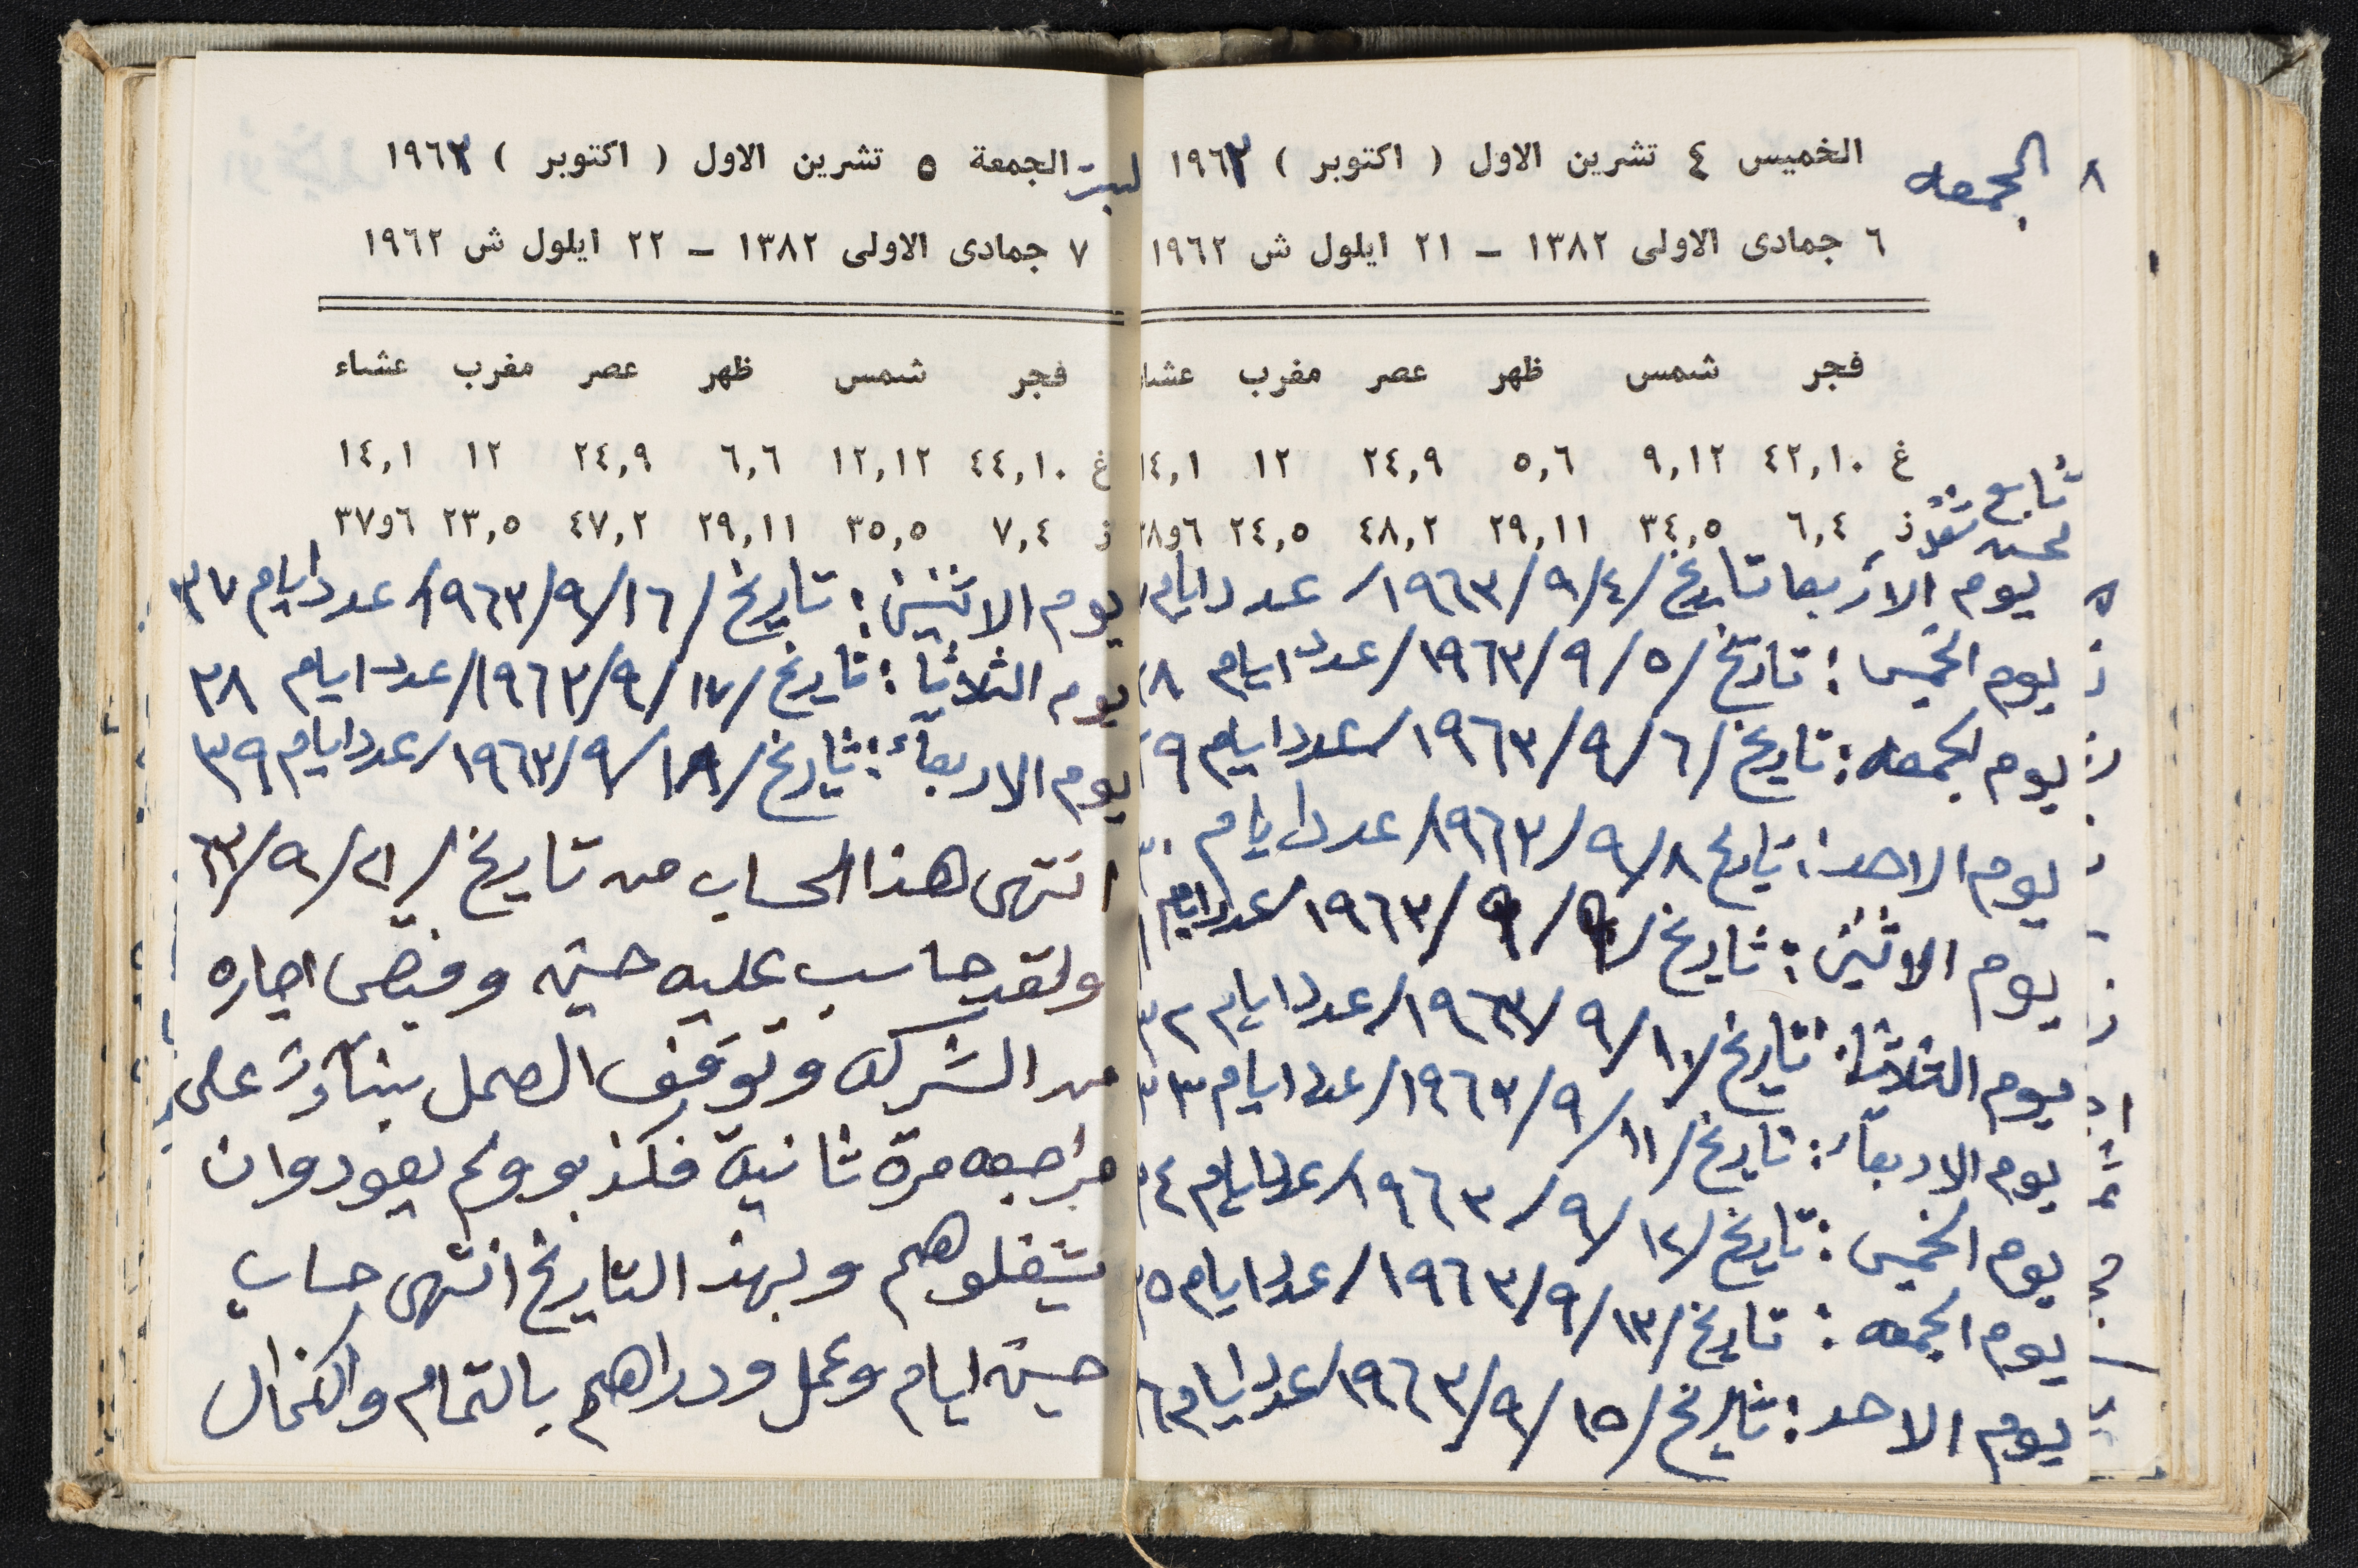 ٨ الجمعه
الخميس ٤ تشرين الاول ( اكتوبر ) ١٩٦٣
٦ جمادى الاولى ١٣٨٢ ـ ٢١ ايلول ش ١٩٦٢
فجر شمس ظهر عصر مغرب عشا
غ ٤٢,١٠ ٩,١٢ ٥,٦ ٢٤,٩ ١٢ ١٤,١
ز ٦,٤ ٣٤,٥ ٢٩,١١ ٤٨,٢ ٢٤,٥ ٦و٣٨
تابع
يوم الاربعا تاريخ /٤/٩/١٩٦٣/ عدد ايام
يوم الخميس : تاريخ /٥/٩/١٩٦٣/ عدد ايام ٢٨
يوم الجمعه : تاريخ /٦/٩/١٩٦٣/ عدد ايام ٢٩
يوم الاحد : تاريخ ٨/٩/١٩٦٣/ عدد ايام ٣٠
يوم الاثنين : تاريخ /٩/٩/١٩٦٣/ عدد ايام
يوم الثلاثا : تاريخ /١٠/٩/١٩٦٣/ عدد ايام ٣٢
يوم الاربعآء : تاريخ /١١/٩/١٩٦٣/ عدد ايام ٣٣
يوم الخميس : تاريخ /١٢/٩/١٩٦٣/ عدد ايام ٣٤
يوم الجمعه : تاريخ /١٣/٩/١٩٦٣/ عدد ايام ٣٥
يوم الاحد : تاريخ /١٥/٩/١٩٦٣/ عدد ايام ٣٦
السبت الجمعة ٥ تشرين الاول ( اكتوبر ) ١٩٦٣
٧ جمادى الاولى ١٣٨٢ ـ ٢٢ ايلول ش ١٩٦٢
فجر شمس ظهر عصر مغرب عشاء
غ ٤٤,١٠ ١٢,١٢ ٦,٦ ٢٤,٩ ١٢ ١٤,١
ز ٧,٤ ٣٥,٥ ٢٩,١١ ٤٧,٢ ٢٣,٥ ٦و٣٧
يوم الاثنين : تاريخ /١٦/٩/١٩٦٣/ عدد ايام ٣٧
يوم الثلاثا : تاريخ /١٧/٩/١٩٦٣/ عدد ايام ٣٨
يوم الاربعآء : تاريخ /١٨/٩/١٩٦٣/ عدد ايام ٣٩
انتهى هذا الحساب من تاريخ /٢١/٩/٦٣
ولقد حاسب عليه حسين وقبض اجاره
من الشركه وتوقف العمل بنآءً على
مراجعه مرة ثانية فكذبو ولم يعودوان
يشغلوهم وبهذ التاريخ انتهى حساب
حسين ايام وعمل ودراهم بالتمام والكمال